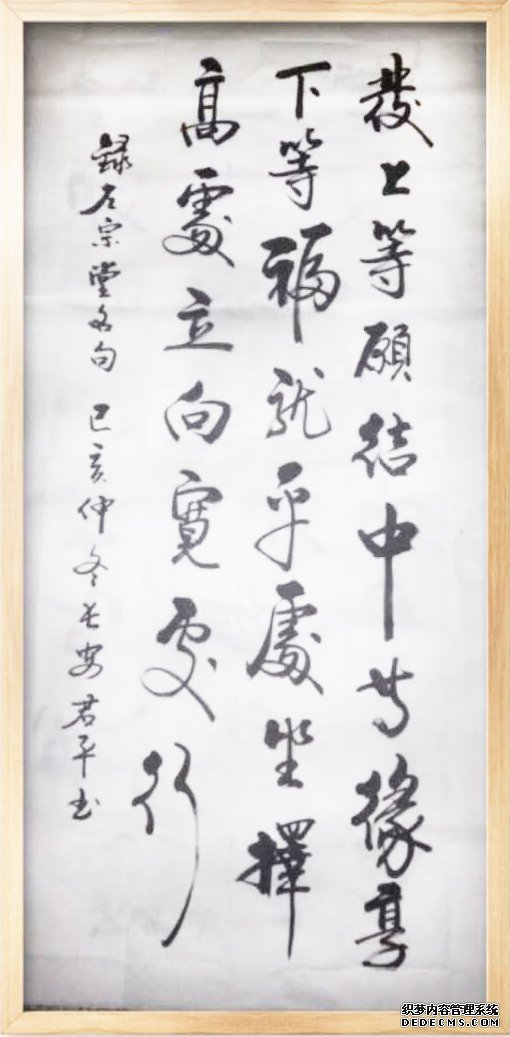 發上等願結中等緣享
下等福就平處坐擇
高處立向寬處行
錄左宗堂名句 己亥仲冬長安君平书
织梦内容管理系统
DEDECMS.COM